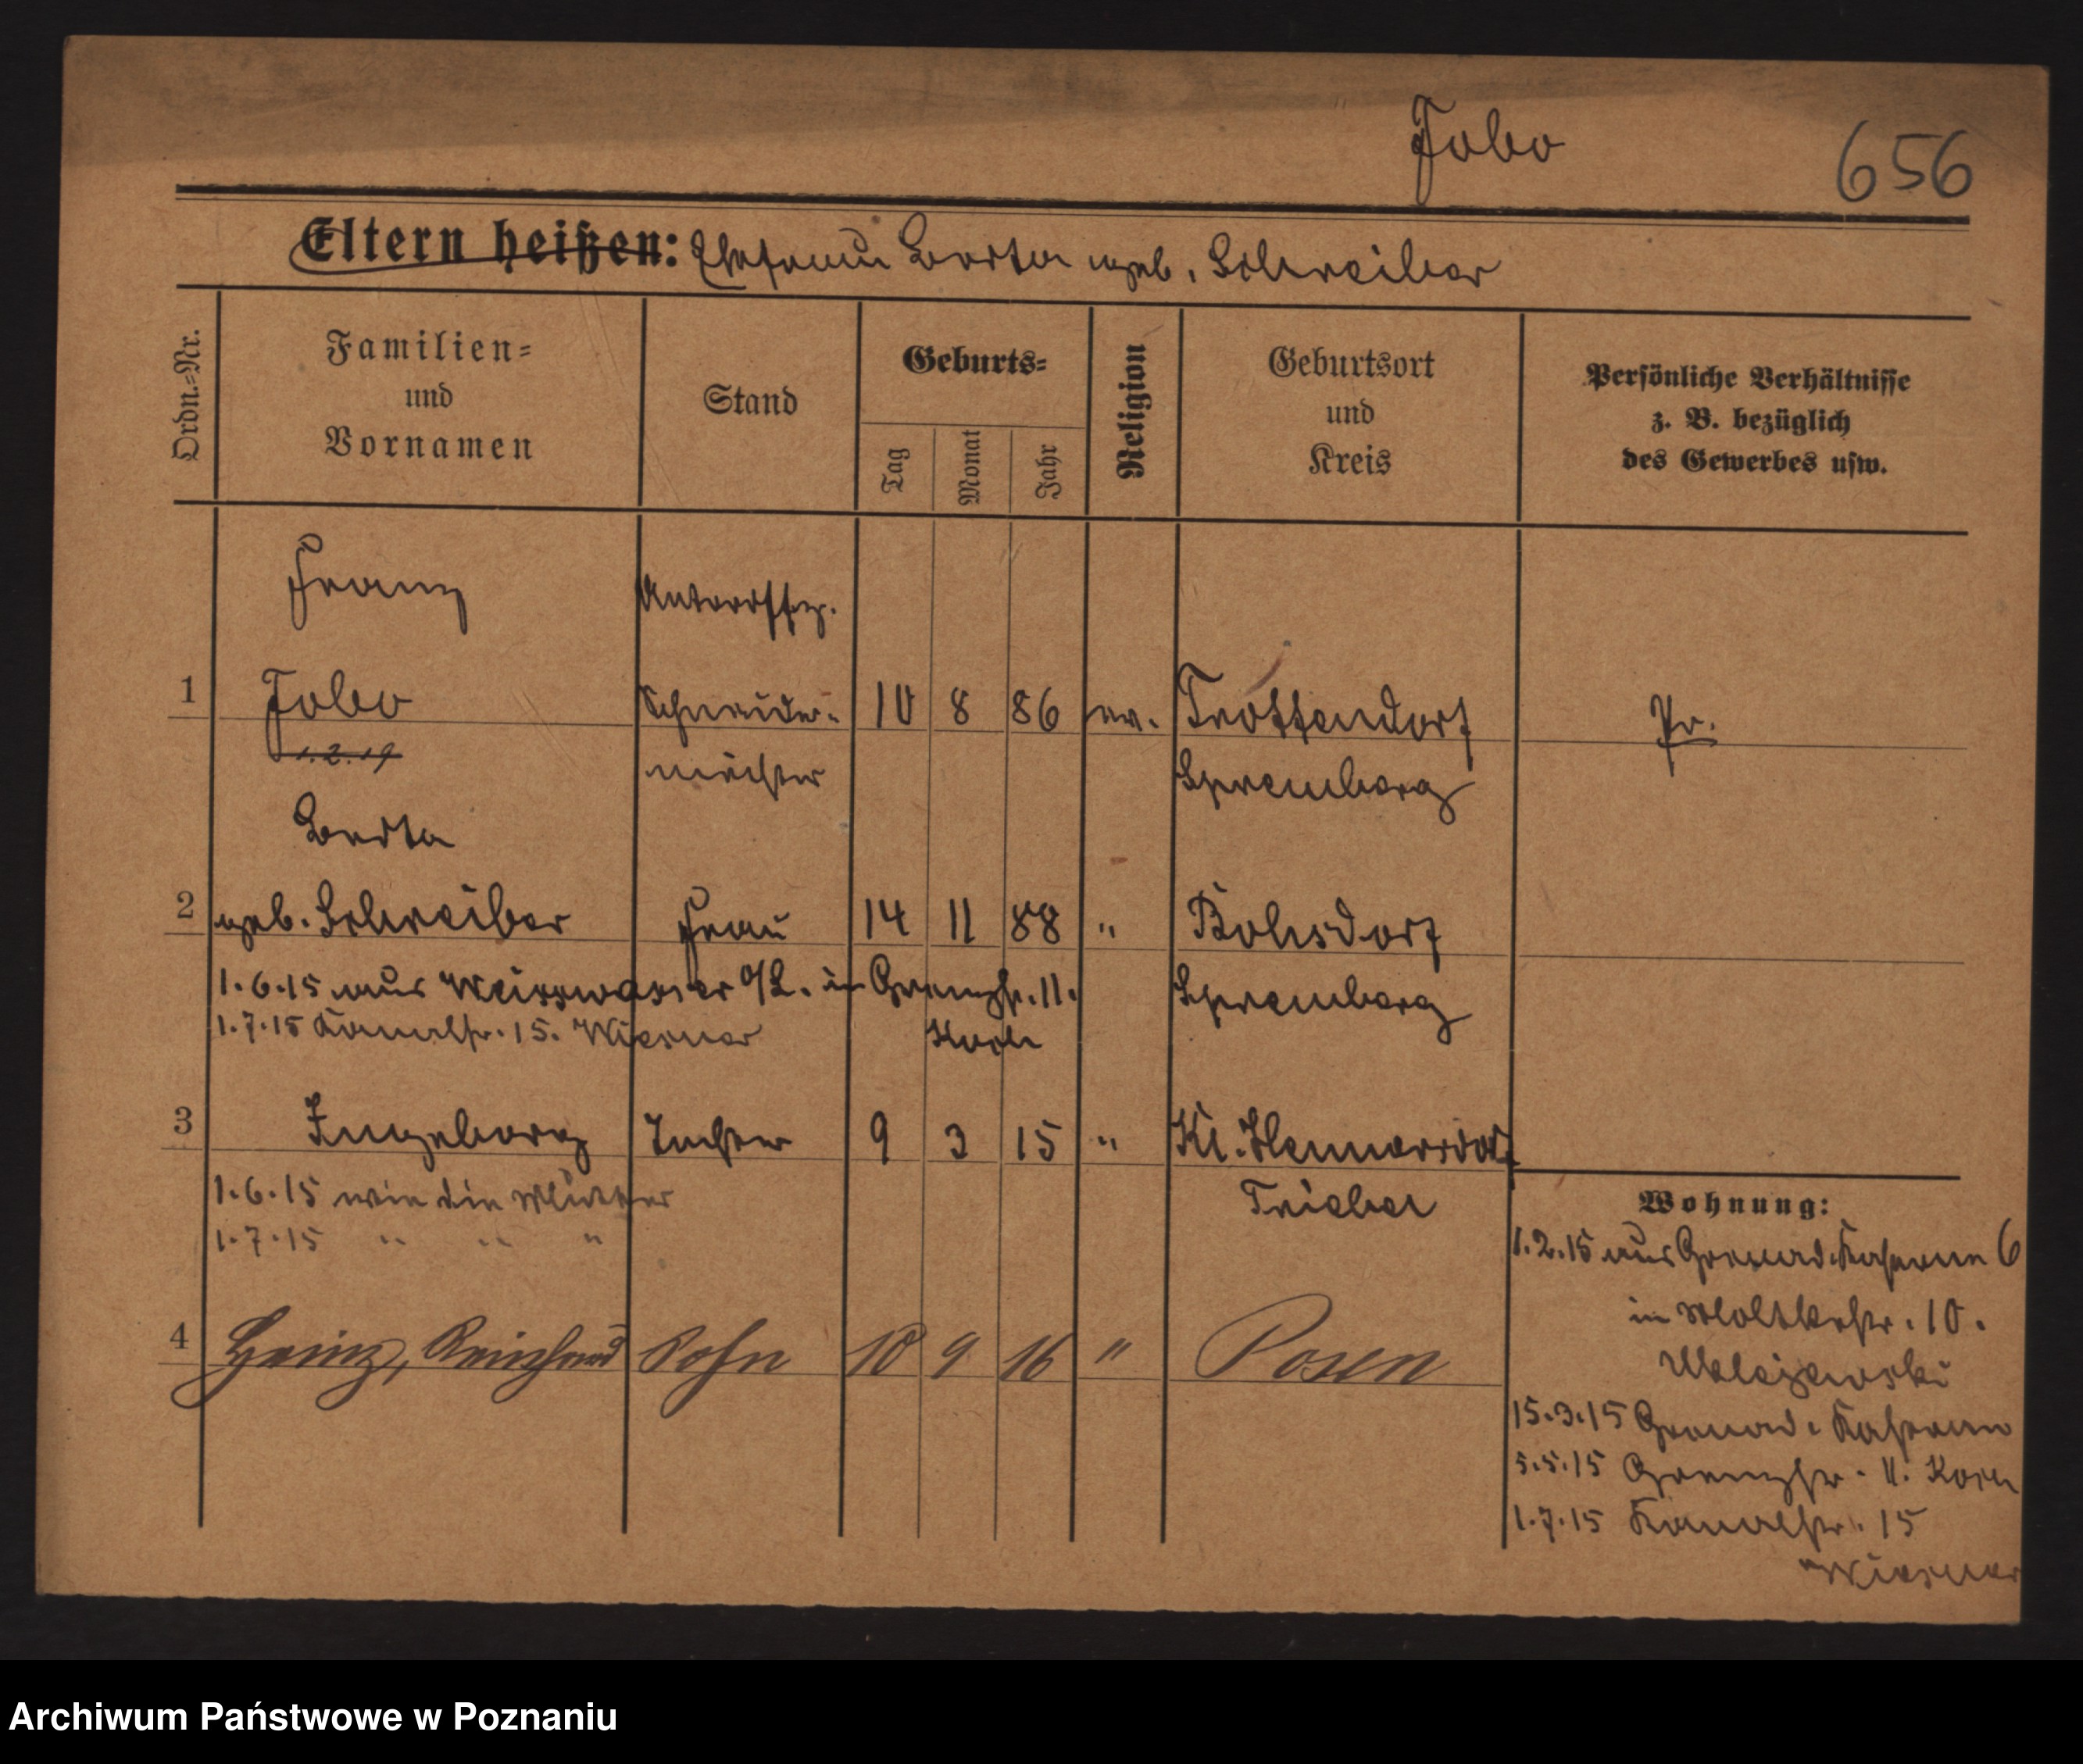 Jobo
656
Eltern heißen: Ehefrau Berta geb. Schreiber
Ordn.=Nr.
Familien=
und
Vornamen
Stand
Geburts=
Tag
Monat
Jahr
Religion
Geburtsort
und
Kreis
Persönliche Verhältnisse
z. B. bezüglich
des Gewerbes usw.
Franz
Unteroffz.
1 Jobo Schneider= 10 8 86 ev. Trottendorf Pr.
1.2.19 meister Spremberg
Berta
2 geb. Schreiber Frau 14 11 88 " Bohsdorf
1.6.15 aus Weisswasser o/L. in Grenzstr. 11. Spremberg
1.7.15 Kanalstr. 15. Wiesner
3 Ingeborg Tochter 9 3 15 " Kl. Hennersdorf
1.6.15 wie die Mutter Triebel
1.7.15 " " "
Wohnung:
1.2.15 aus Grenad. Kaserne 6
in Moltkestr. 10.
4 Heinz, Reinhard Sohn 10 9 16 " Posen
15.3.15 Grenad. Kaserne
5.5.15 Grenzstr. 11.
1.7.15 Kanalstr. 15
Wiesner
Archiwum Państwowe w Poznaniu